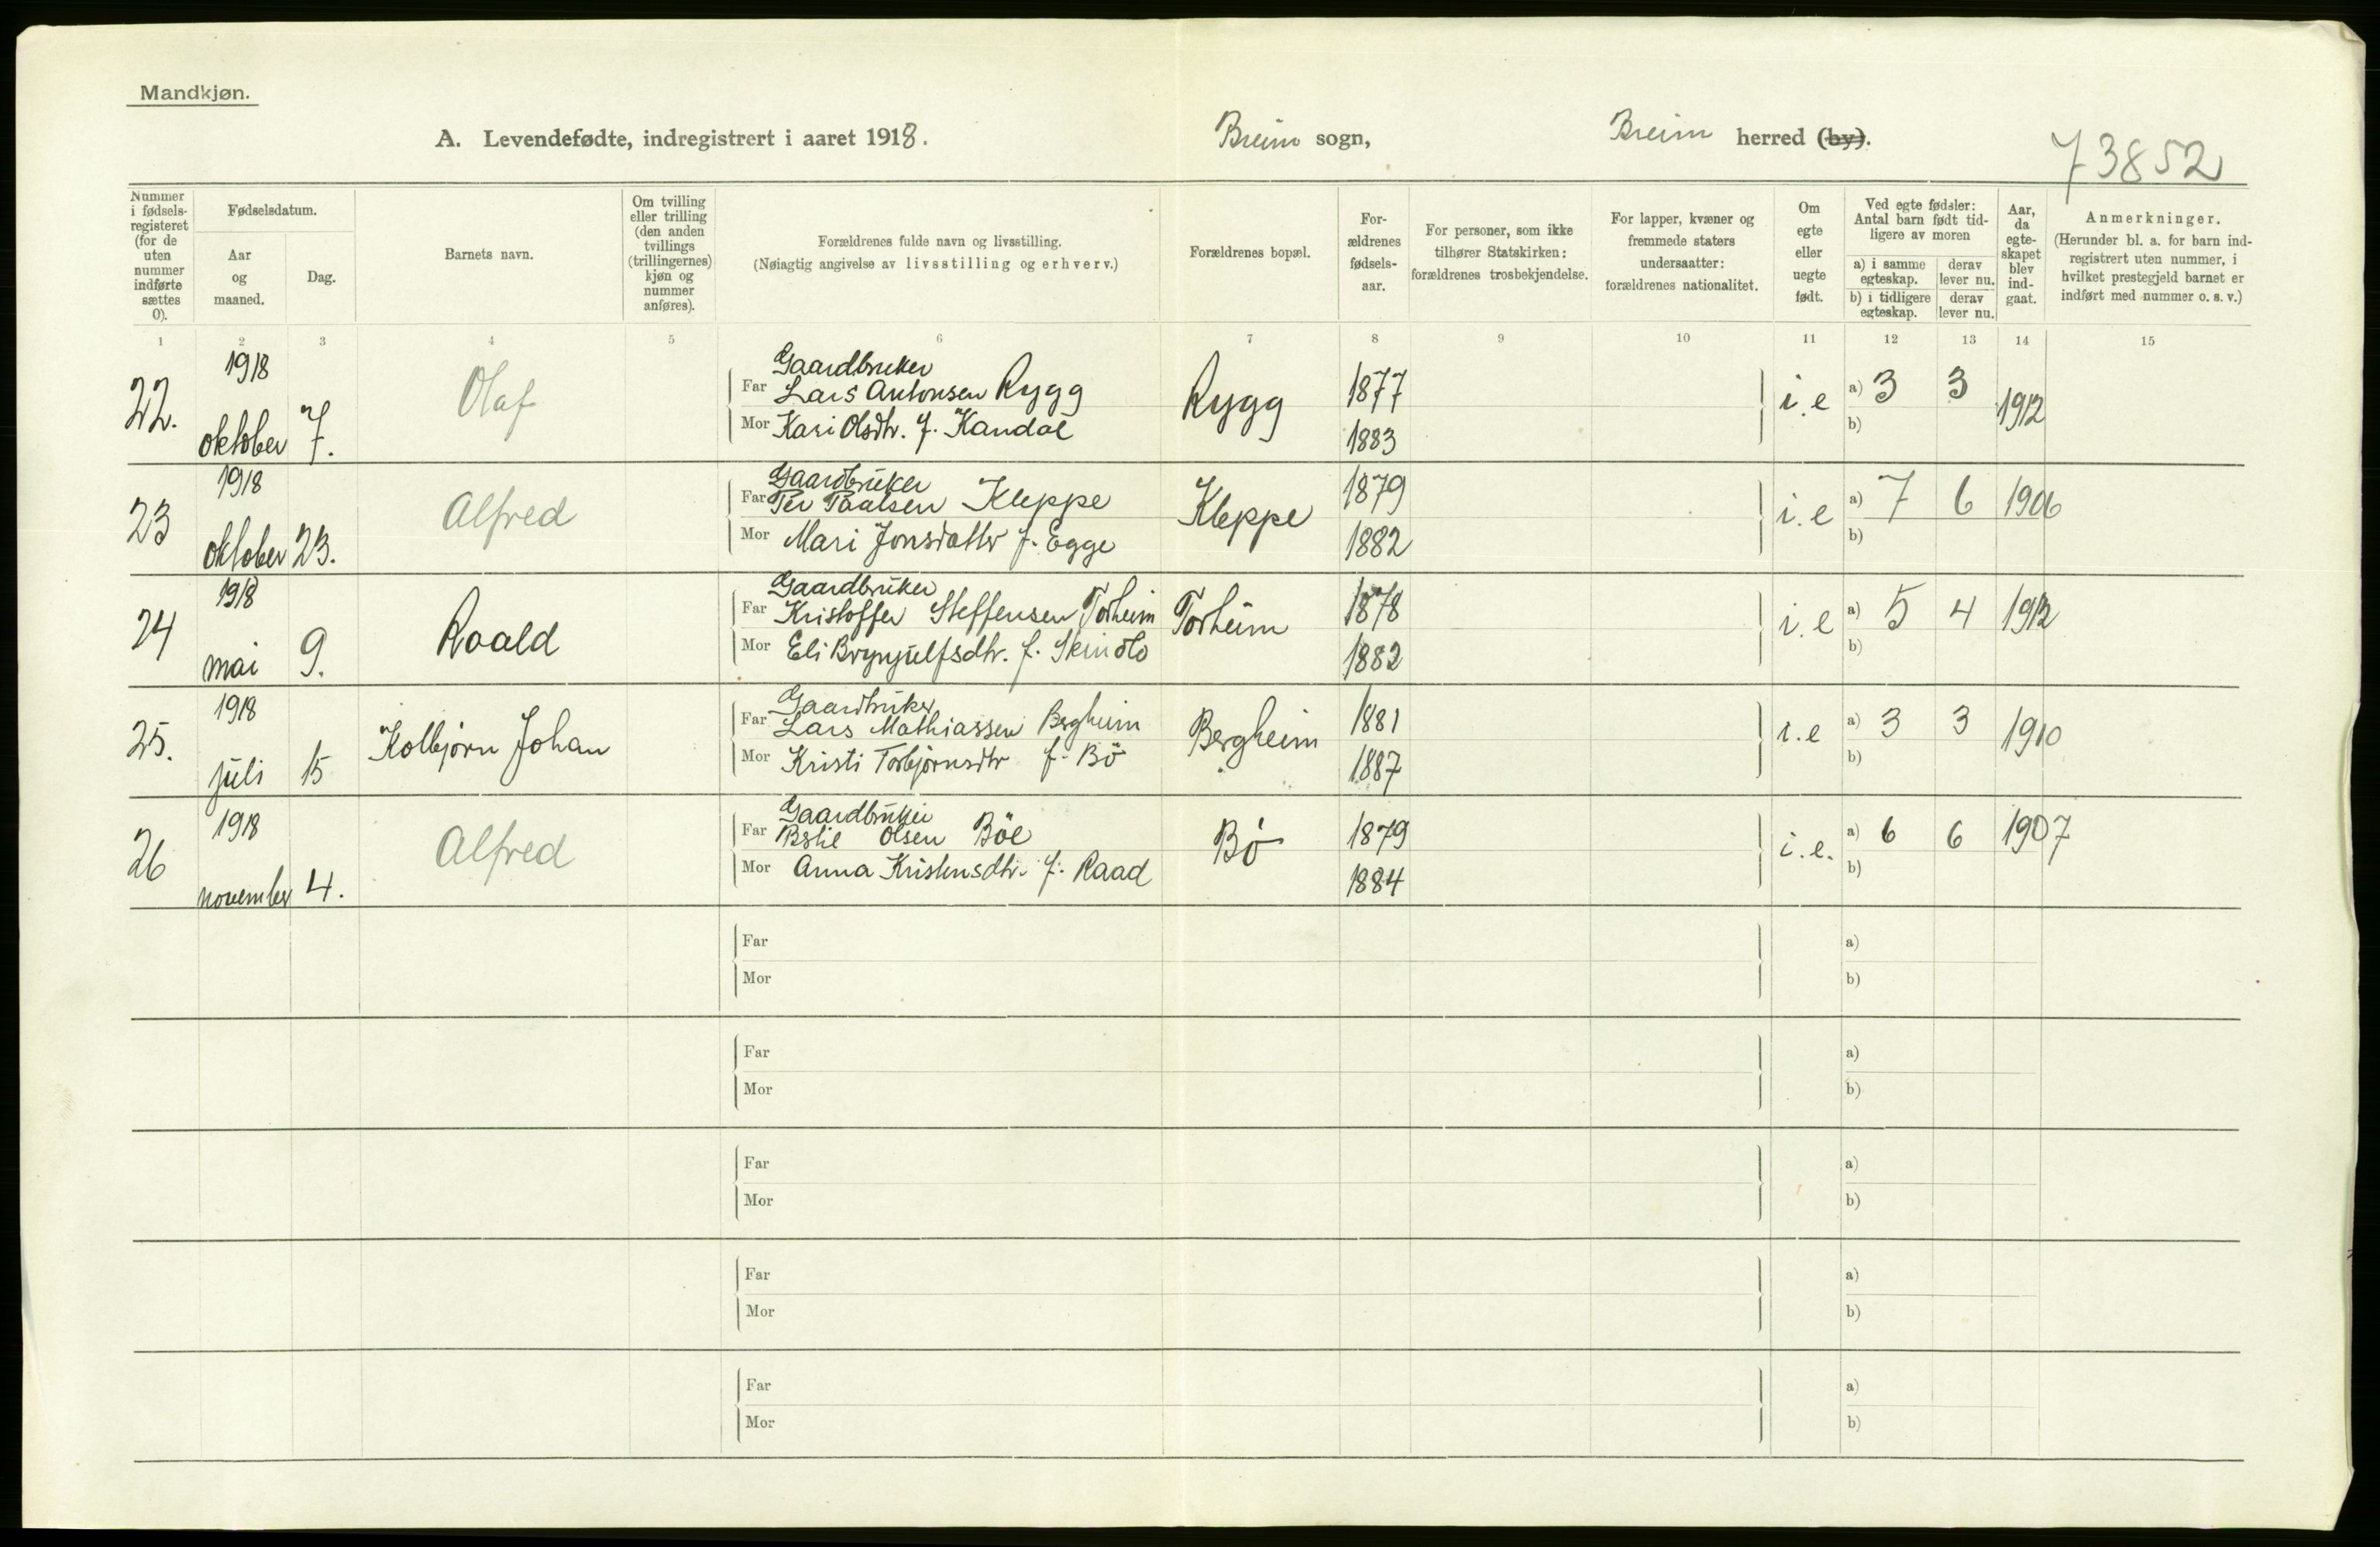 Mandkjøn.
A. Levendefødte, indregistrert i aaret 1918. Breim sogn, Breim herred (by).
73852
Nummer i fødselsregisteret (for de uten nummer indførte sættes 0).
Fødselsdatum.
Aar og maaned.
Dag.
Barnets navn.
Om tvilling eller trilling (den anden tvillings (trillingernes) kjøn og nummer anføres).
Forældrenes fulde navn og livsstilling.
(Nøiagtig angivelse av livsstilling og erhverv.)
Forældrenes bopæl.
Forældrenes fødselsaar.
For personer, som ikke tilhører Statskirken: forældrenes trosbekjendelse.
For lapper, kvæner og fremmede staters undersaatter: forældrenes nationalitet.
Om egte eller uegte født.
Ved egte fødsler: Antal barn født tidligere av moren
a) i samme egteskap. derav lever nu.
b) i tidligere egteskap. derav lever nu.
Aar, da egteskapet blev indgaat.
Anmerkninger.
(Herunder bl. a. for barn indregistrert uten nummer, i hvilket prestegjeld barnet er indført med nummer o. s. v.)
1 2 3 4 5 6 7 8 9 10 11 12 13 14 15
22. 1918 oktober 7. Olaf
Gaardbruker
Far Lars Antonsen Rygg Rygg 1877 i.e a) 3 3 1912
Mor Kari Olsdtr. f. Kandal 1883 b)
23 1918 oktober 23. Alfred
Gaardbruker
Far Per Paalsen Kleppe Kleppe 1879 i.e a) 7 6 1906
Mor Mari Jonsdatter f. Egge 1882 b)
24 1918 mai 9. Roald
Gaardbruker
Far Kristoffer Steffensen Torheim Torheim 1878 i.e a) 5 4 1912
Mor Eli Brynjulfsdtr. f. Skindlo 1882 b)
25. 1918 juli 15 Kolbjørn Johan
Gaardbruker
Far Lars Mathiassen Bergheim Bergheim 1881 i.e a) 3 3 1910
Mor Kristi Torbjørnsdtr f. Bö 1887 b)
26 1918 november 4. Alfred
Gaardbruker
Far Olsen Böe Bö 1879 i.e. a) 6 6 1907
Mor Anna Kristensdtr. f. Raad 1884 b)
Far a)
Mor b)
Far a)
Mor b)
Far a)
Mor b)
Far a)
Mor b)
Far a)
Mor b)